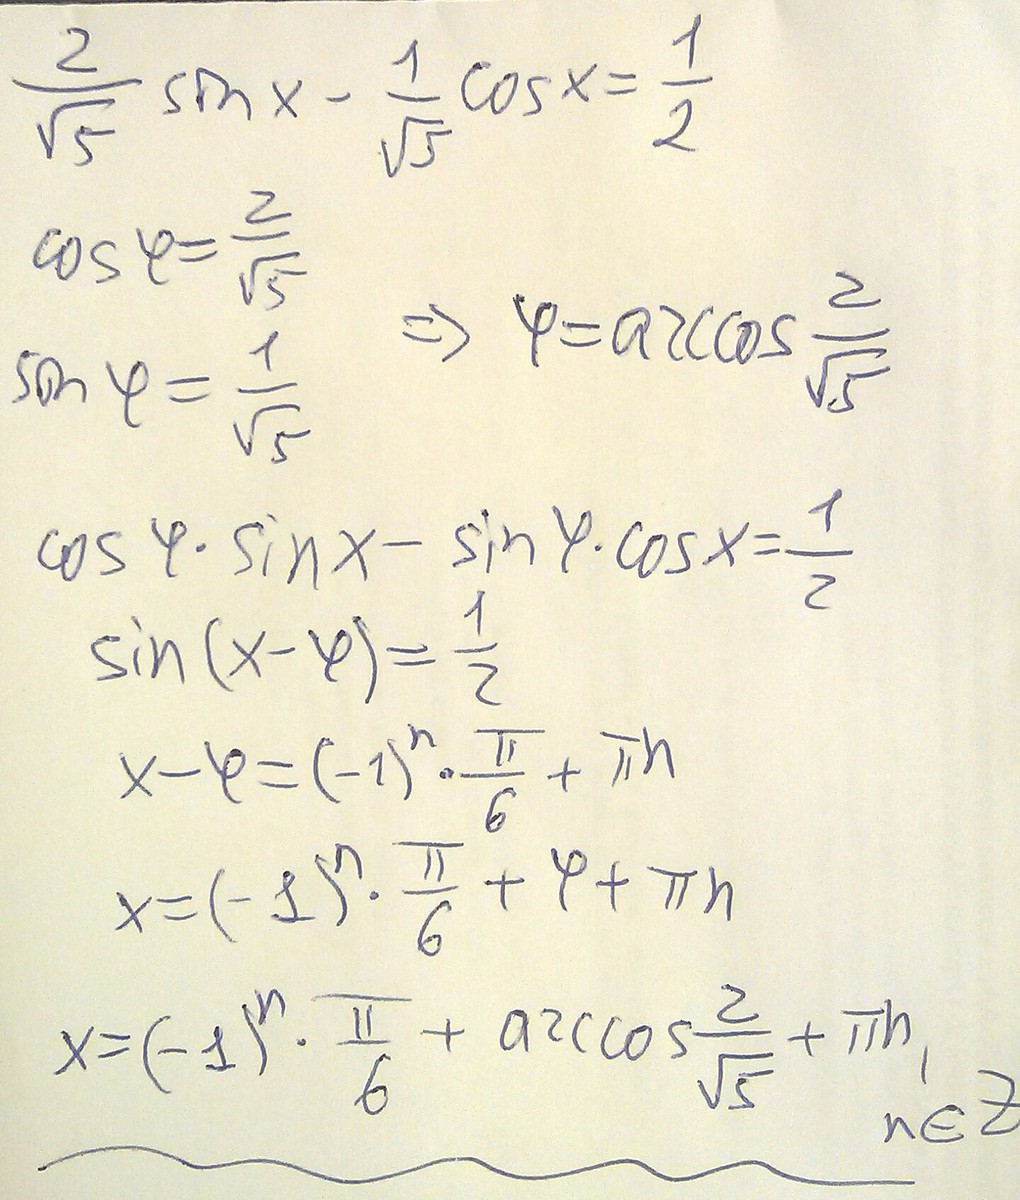 2/√5 sin x - 1/√5 cos x = 1/2
cos φ = 2/√5
sin φ = 1/√5
⇒ φ = arccos 2/√5
cos φ · sin x - sin φ · cos x = 1/2
sin(x - φ) = 1/2
x - φ = (-1)ⁿ · π/6 + πn
x = (-1)ⁿ · π/6 + φ + πn
x = (-1)ⁿ · π/6 + arccos 2/√5 + πn,
n ∈ Z